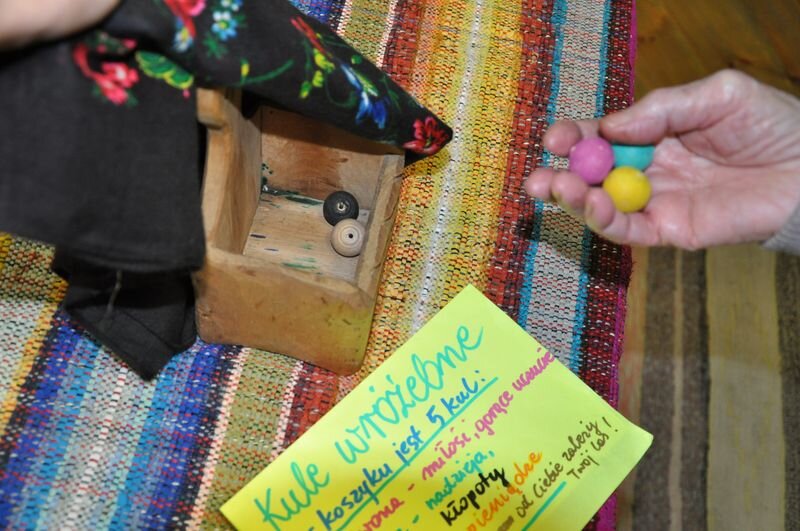 Kule wróżebne
koszyku jest 5 kul:
- miłość, gorące uczucie
- nadzieja,
kłopoty
pieniądze
od Ciebie zależy
Twój los!